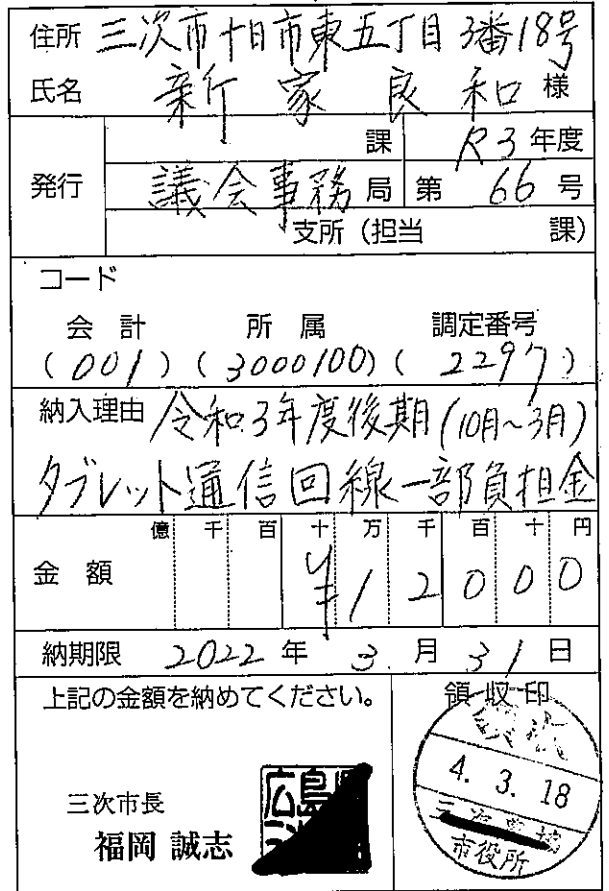 住所 三次市十日市東五丁目3番18号
氏名 新家良和 様
課 R3年度
発行 議会事務局 第66号
支所(担当 課)
コード
会計 所属 調定番号
(001)(3000100)(2297)
納入理由 令和3年度後期(10月~3月)
タブレット通信回線一部負担金
億千百十万千百十円
金額 ¥12000
納期限 2022年3月31日
上記の金額を納めてください。
領収印
4.3.18
市役所
三次市長
福岡 誠志
広島